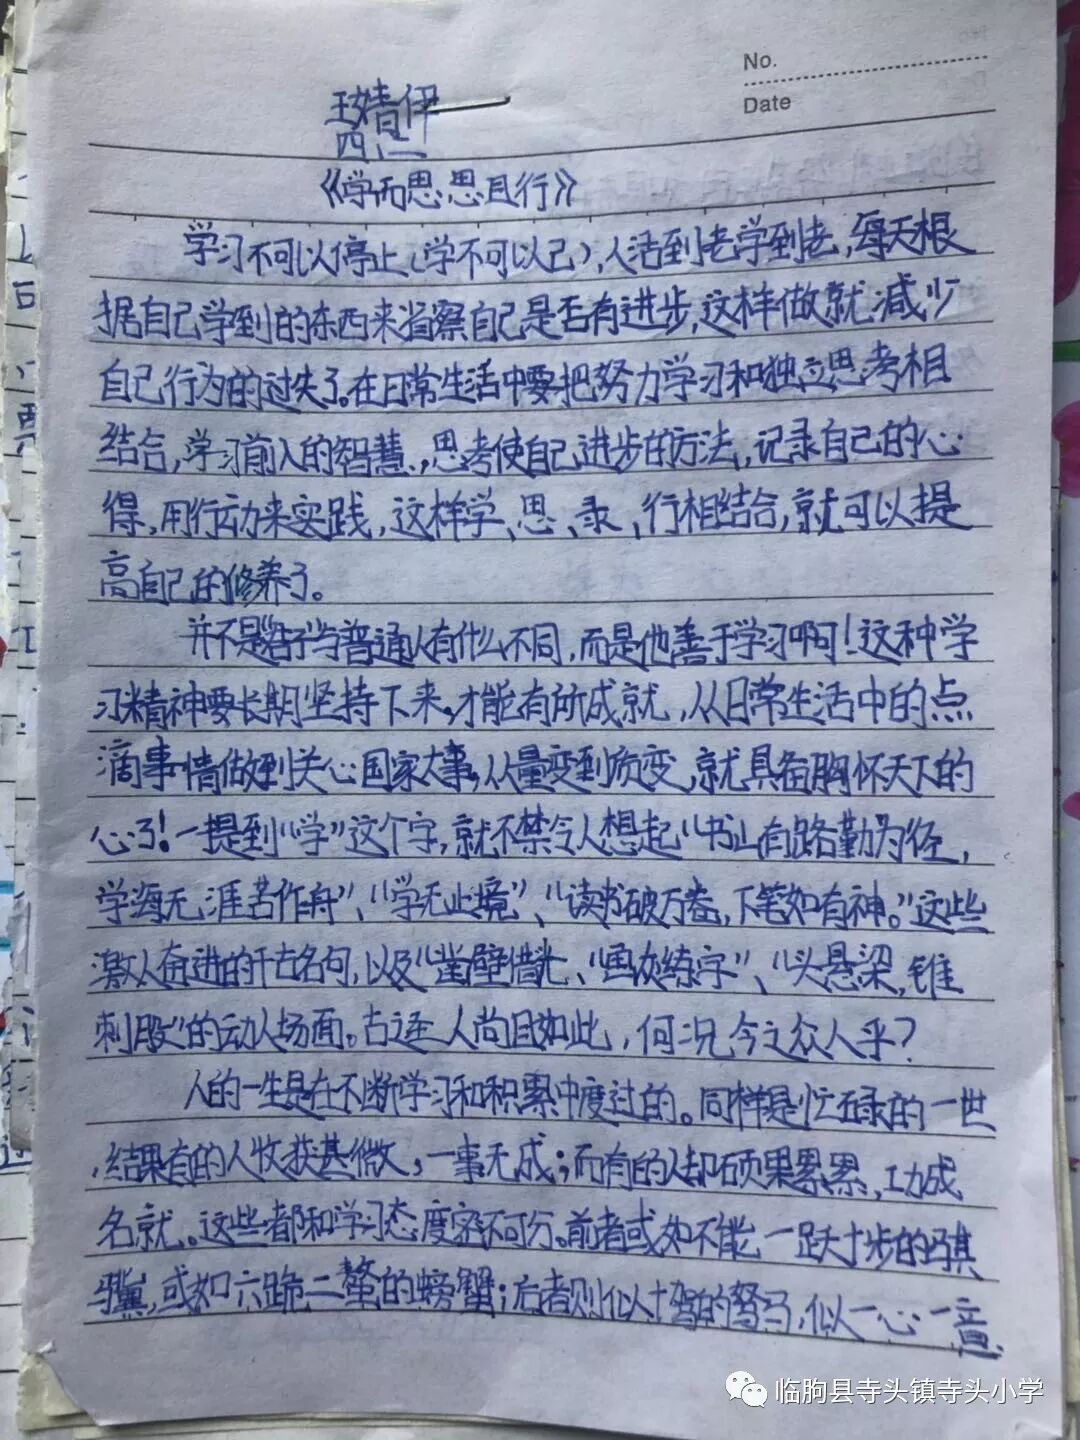 No.
Date
王婧伊
四、二
《学而思,思且行》
学习不可以停止(学不可以已),人活到老学到老,每天根
据自己学到的东西来省察自己是否有进步,这样做就减少
自己行为的过失了。在日常生活中要把努力学习和独立思考相
结合,学习前人的智慧,思考使自己进步的方法,记录自己的心
得,用行动来实践,这样学、思、录、行相结合,就可以提
高自己的修养了。
并不是君子与普通人有什么不同,而是他善于学习啊!这种学
习精神要长期坚持下来,才能有所成就,从日常生活中的点
滴事情做到关心国家大事,从量变到质变,就具备胸怀天下的
心了!一提到“学”这个字,就不禁令人想起“书山有路勤为径,
学海无涯苦作舟”、“学无止境”、“读书破万卷,下笔如有神。”这些
激人奋进的千古名句,以及“凿壁借光、“画荻练字”、“头悬梁,锥
刺股”的动人场面。古之人尚且如此,何况今之众人乎?
人的一生是在不断学习和积累中度过的。同样是忙碌的一世
,结果有的人收获甚微,一事无成;而有的人却硕果累累,功成
名就。这些都和学习态度密不可分。前者或如不能一跃十步的骐
骥,或如六跪二螯的螃蟹;后者则似十驾的驽马,似一心一意
临朐县寺头镇寺头小学